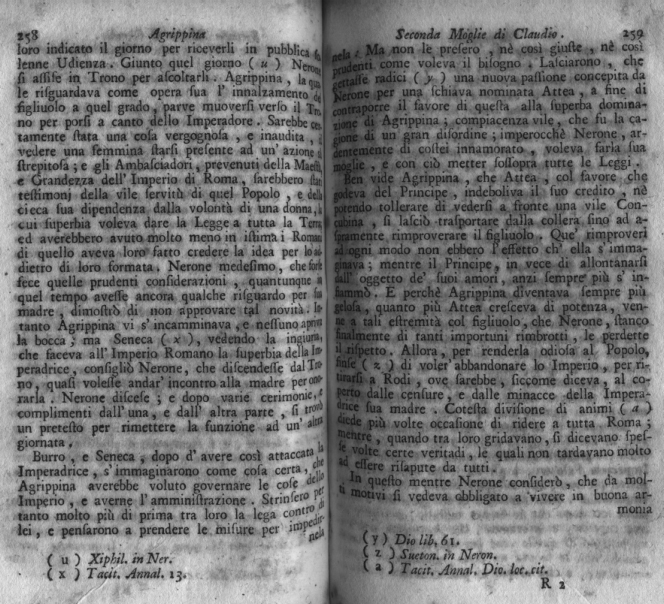 258 Agrippina
loro indicato il giorno per riceverli in pubblica so-
lenne Udienza. Giunto quel giorno ( u ) Nerone
si assise in Trono per ascoltarli. Agrippina, la qua-
le risguardava come opera sua l' innalzamento del
figliuolo a quel grado, parve muoversi verso il Tro-
no per porsi a canto dello Imperadore. Sarebbe cer-
tamente stata una cosa vergognosa, e inaudita, il
vedere una femmina starsi presente ad un' azione sì
strepitosa; e gli Ambasciadori, prevenuti della Maestà
e Grandezza dell' Imperio di Roma, sarebbero stati
testimonj della vile servitù di quel Popolo, e della
cieca sua dipendenza dalla volontà di una donna, la
cui superbia voleva dare la Legge a tutta la Terra,
ed averebbero avuto molto meno in istima i Romani
di quello aveva loro fatto credere la idea per lo ad-
dietro di loro formata. Nerone medesimo, che forse
fece quelle prudenti considerazioni, quantunque in
quel tempo avesse ancora qualche risguardo per sua
madre, dimostrò di non approvare tal novità. In-
tanto Agrippina vi s' incamminava, e nessuno apriva
la bocca; ma Seneca ( x ), vedendo la ingiuria,
che faceva all' Imperio Romano la superbia della Im-
peradrice, consigliò Nerone, che discendesse dal Tro-
no, quasi volesse andar' incontro alla madre per ono-
rarla. Nerone discese; e dopo varie cerimonie, e
complimenti dall' una, e dall' altra parte, si trovò
un pretesto per rimettere la funzione ad un' altra
giornata.
Burro, e Seneca, dopo d' avere così attaccata la
Imperadrice, s' immaginarono come cosa certa, che
Agrippina averebbe voluto governare le cose dello
Imperio, e averne l' amministrazione. Strinsero per
tanto molto più di prima tra loro la lega contro di
lei, e pensarono a prendere le misure per impedir-
nela
( u ) Xiphil. in Ner.
( x ) Tacit. Annal. 13.
Seconda Moglie di Claudio. 259
nela. Ma non le presero, nè così giuste, nè così
prudenti come voleva il bisogno. Lasciarono, che
gettasse radici ( y ) una nuova passione concepita da
Nerone per una schiava nominata Attea, a fine di
contraporre il favore di questa alla superba domina-
zione di Agrippina; compiacenza vile, che fu la ca-
gione di un gran disordine; imperocchè Nerone, ar-
dentemente di costei innamorato, voleva farla sua
moglie, e con ciò metter sossopra tutte le Leggi.
Ben vide Agrippina, che Attea, col favore che
godeva del Principe, indeboliva il suo credito, nè
potendo tollerare di vedersi a fronte una vile Con-
cubina, si lasciò trasportare dalla collera sino ad a-
spramente rimproverare il figliuolo. Que' rimproveri
ad ogni modo non ebbero l' effetto ch' ella s' imma-
ginava; mentre il Principe, in vece di allontanarsi
dall' oggetto de' suoi amori, anzi sempre più s' in-
fiammò. E perchè Agrippina diventava sempre più
gelosa, quanto più Attea cresceva di potenza, ven-
ne a tali estremità col figliuolo, che Nerone, stanco
finalmente di tanti importuni rimbrotti, le perdette
il rispetto. Allora, per renderla odiosa al Popolo,
finse ( z ) di voler' abbandonare lo Imperio, per ri-
tirarsi a Rodi, ove sarebbe, siccome diceva, al co-
perto dalle censure, e dalle minacce della Impera-
drice sua madre. Cotesta divisione di animi ( a )
diede più volte occasione di ridere a tutta Roma;
mentre, quando tra loro gridavano, si dicevano spes-
se volte certe veritadi, le quali non tardavano molto
ad essere risapute da tutti.
In questo mentre Nerone considerò, che da mol-
ti motivi si vedeva obbligato a vivere in buona ar-
monia
( y ) Dio lib. 61.
( z ) Sueton. in Neron.
( a ) Tacit. Annal. Dio. loc. cit.
R 2